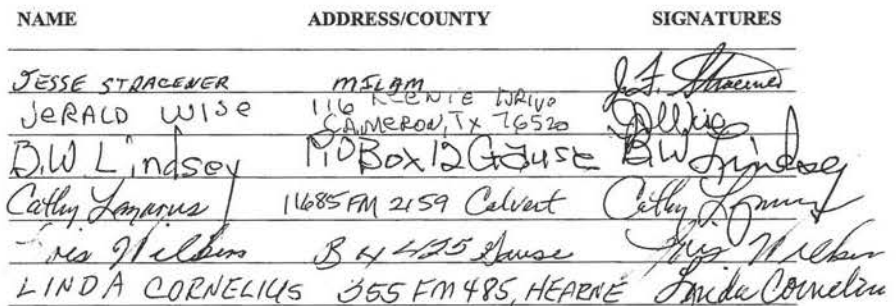 NAME ADDRESS/COUNTY SIGNATURES
JESSE STRACENER MILAM J.F. Stracener
JERALD WISE 116 DRIVE
CAMERON, TX 76520 Wise
B.W. Lindsey P.O Box 12 Gause B.W Lindsey
Cathy Lazarus 11685 FM 2159 Calvert Cathy
Iris Wilken B x 425 Gause Iris Wilken
LINDA CORNELIUS 355 FM 485, HEARNE Linda Cornelius